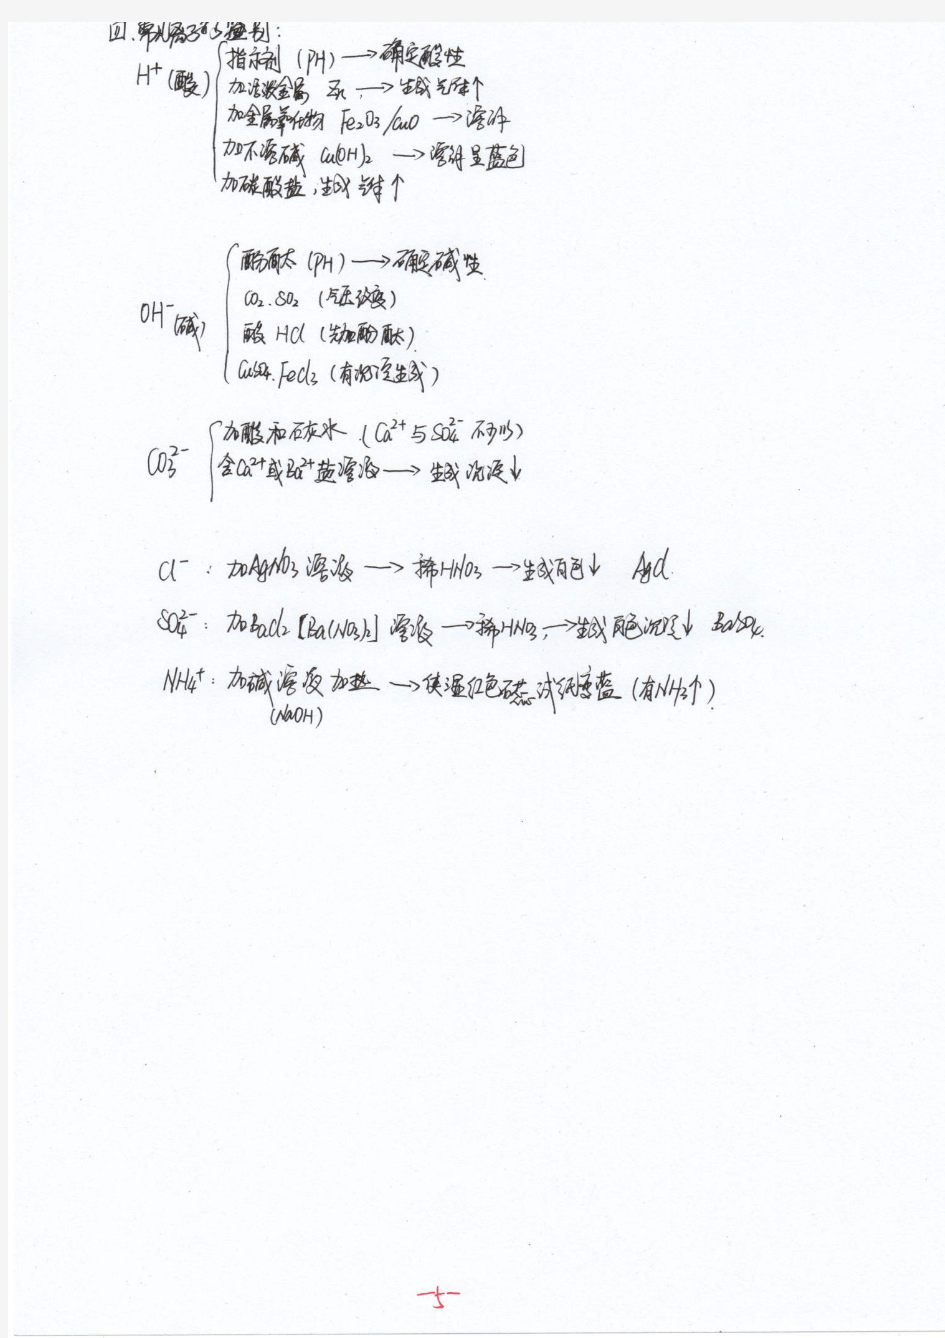 四.常见离子的鉴别:
H⁺(酸)
指示剂 (PH) → 确定酸性
加活泼金属 Zn, → 生成气体↑
加金属氧化物 Fe₂O₃/CuO → 溶解
加不溶碱 Cu(OH)₂ → 溶解呈蓝色
加碳酸盐,生成气体↑
OH⁻(碱)
酚酞 (PH) → 确定碱性
CO₂.SO₂ (气压改变)
酸 HCl (先加酚酞)
CuSO₄.FeCl₃ (有沉淀生成)
CO₃²⁻
加酸和石灰水 (Ca²⁺与SO₄²⁻
含Ca²⁺或Ba²⁺盐溶液 → 生成沉淀↓
Cl⁻: 加AgNO₃溶液 → 稀HNO₃ → 生成白色↓ AgCl
SO₄²⁻: 加BaCl₂[Ba(NO₃)₂]溶液 → 稀HNO₃, → 生成白色沉淀↓ BaSO₄.
NH₄⁺: 加碱溶液加热 → 使湿红色石蕊试纸变蓝 (有NH₃↑)
(NaOH)
-5-